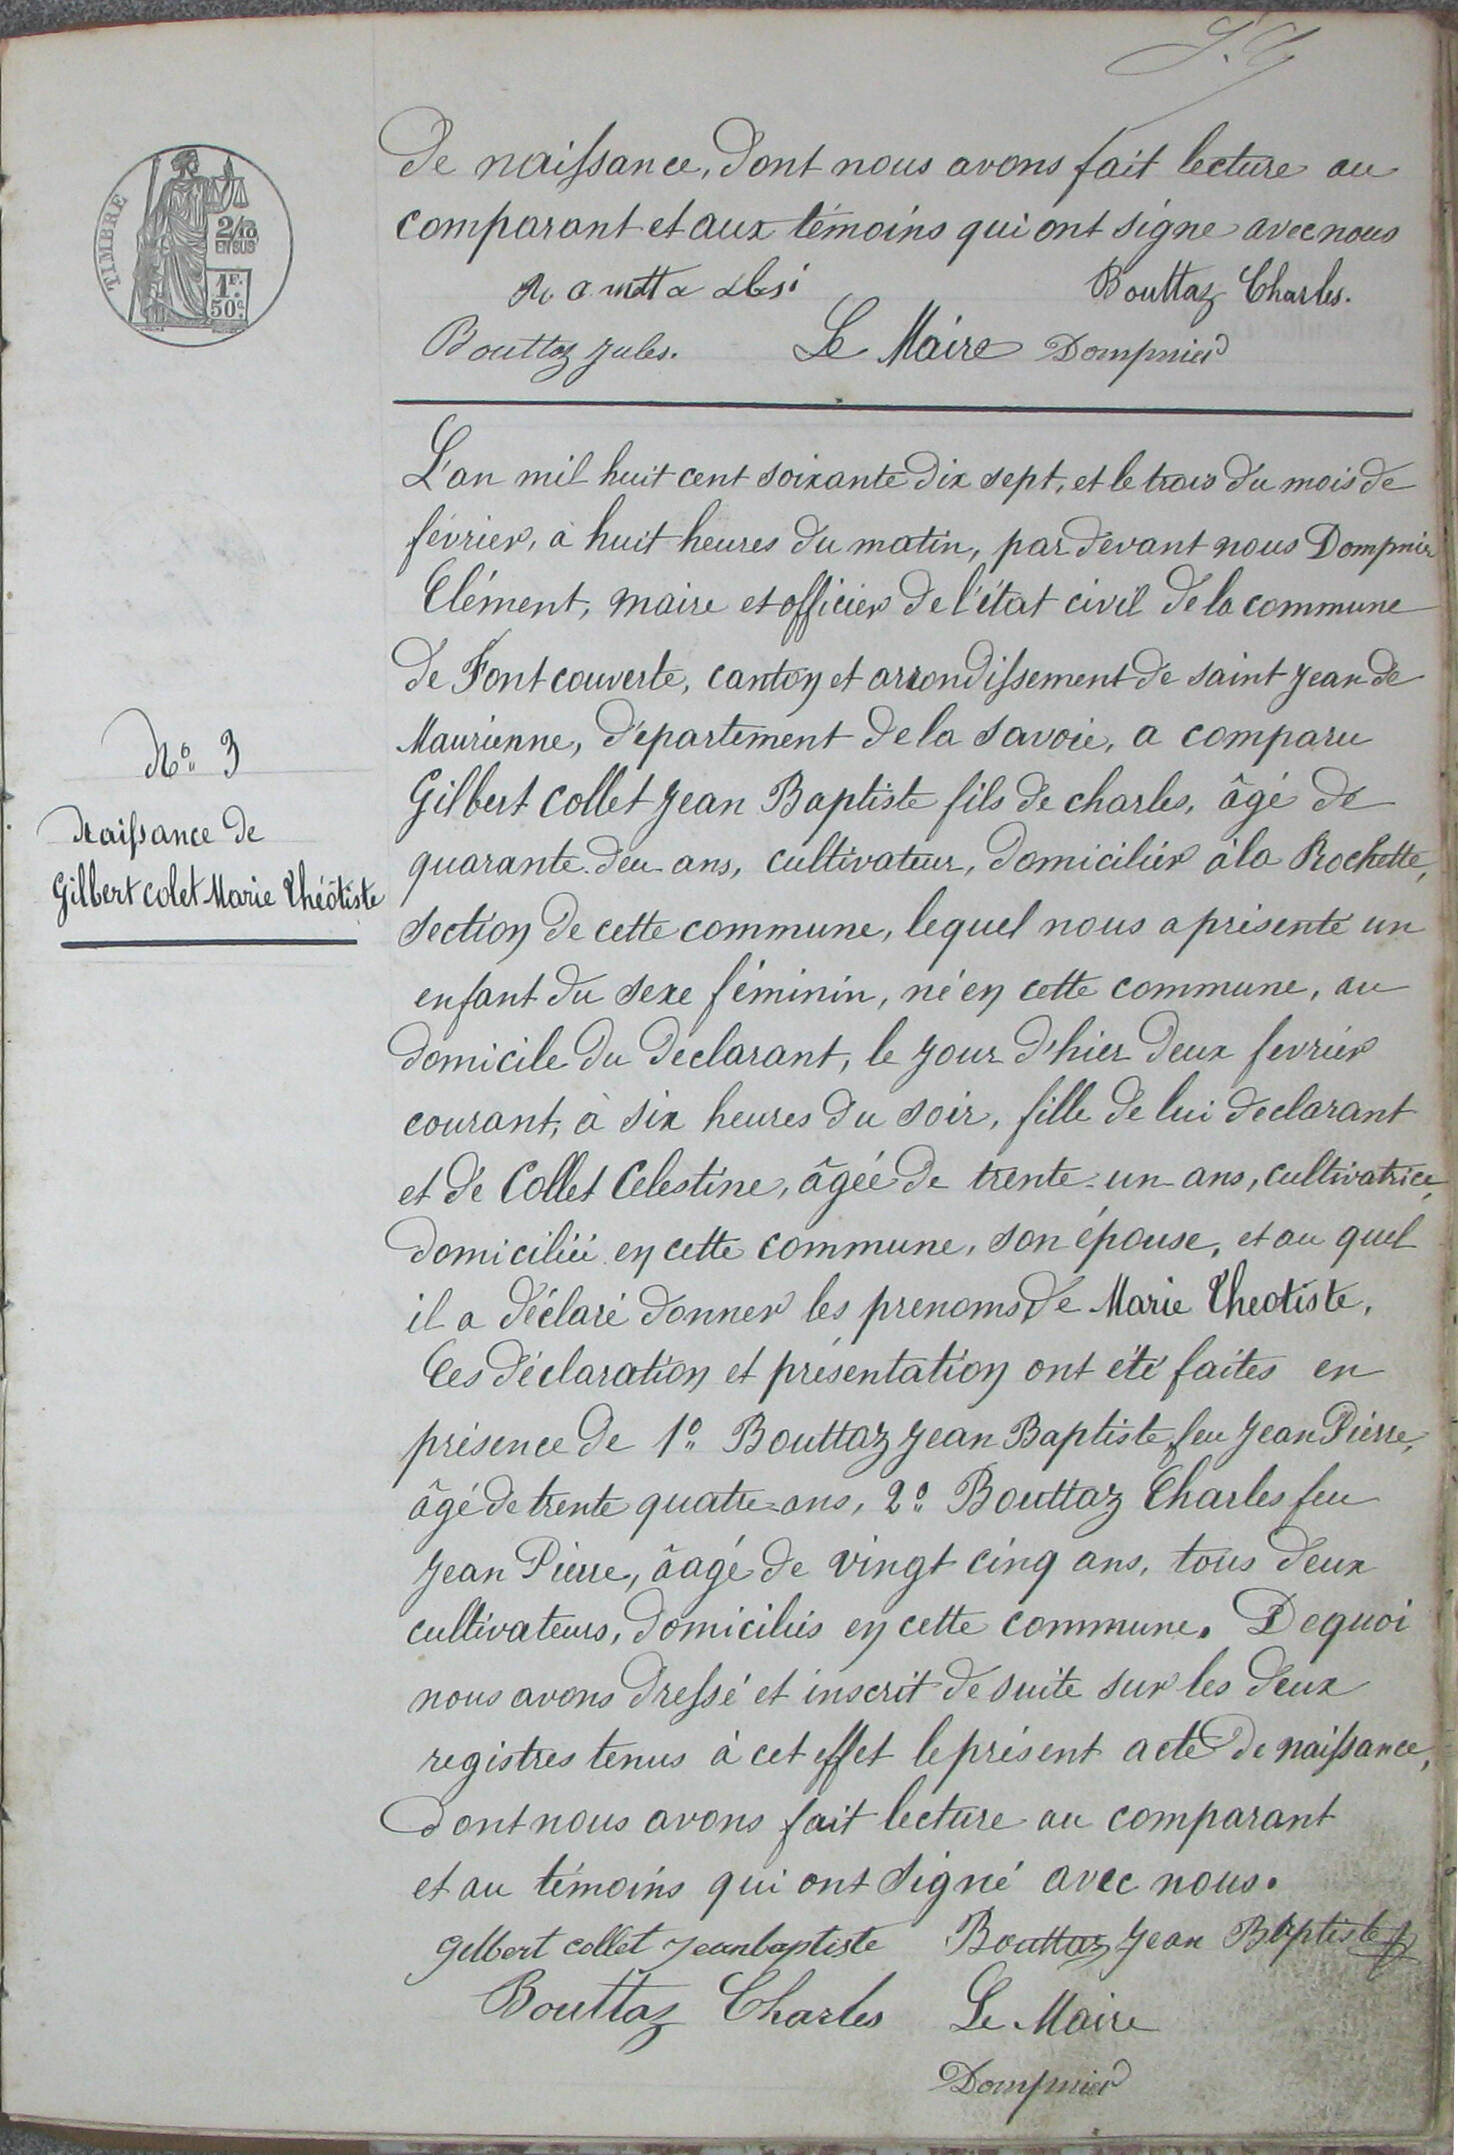 De naissance, dont nous avons fait lecture au
comparant et aux témoins qui ont signé avec nous
Bouttaz Charles.
Bouttaz Jules. Le Maire Dompnier
TIMBRE
2/10
EN SUS
1F.
50c.
L'an mil huit cent soixante dix sept, et le trois du mois de
février, à huit heures du matin, par devant nous Dompnier
Clément, maire et officier de l'état civil de la commune
de Fontcouverte, canton et arrondissement de saint Jean de
Maurienne, département de la Savoie, a comparu
Gilbert Collet Jean Baptiste fils de charles, âgé de
quarante deu ans, cultivateur, domicilier à la Rochette,
section de cette commune, lequel nous a présenté un
enfant du sexe féminin, né en cette commune, au
domicile du declarant, le jour d'hier deux fevrier
courant, à six heures du soir, fille de lui declarant
et de Collet Celestine, âgée de trente-un ans, cultivatrice,
domiciliée en cette commune, son épouse, et au quel
il a déclaré donner les prenoms de Marie Theotiste.
Ces déclaration et présentation ont été faites en
présence de 1° Bouttaz Jean Baptiste feu Jean Pierre,
âgé de trente quatre ans, 2° Bouttaz Charles feu
Jean Pierre, âagé de vingt cinq ans, tous deux
cultivateurs, domiciliés en cette commune. De quoi
nous avons dressé et inscrit de suite sur les deux
registres tenus à cet effet le présent acte de naissance,
dont nous avons fait lecture au comparant
et au témoins qui ont signé avec nous.
Gilbert collet Jeanbaptiste Bouttaz Jean Baptiste
Bouttaz Charles Le Maire
Dompnier
N° 3
Naissance de
Gilbert Colet Marie Théotiste